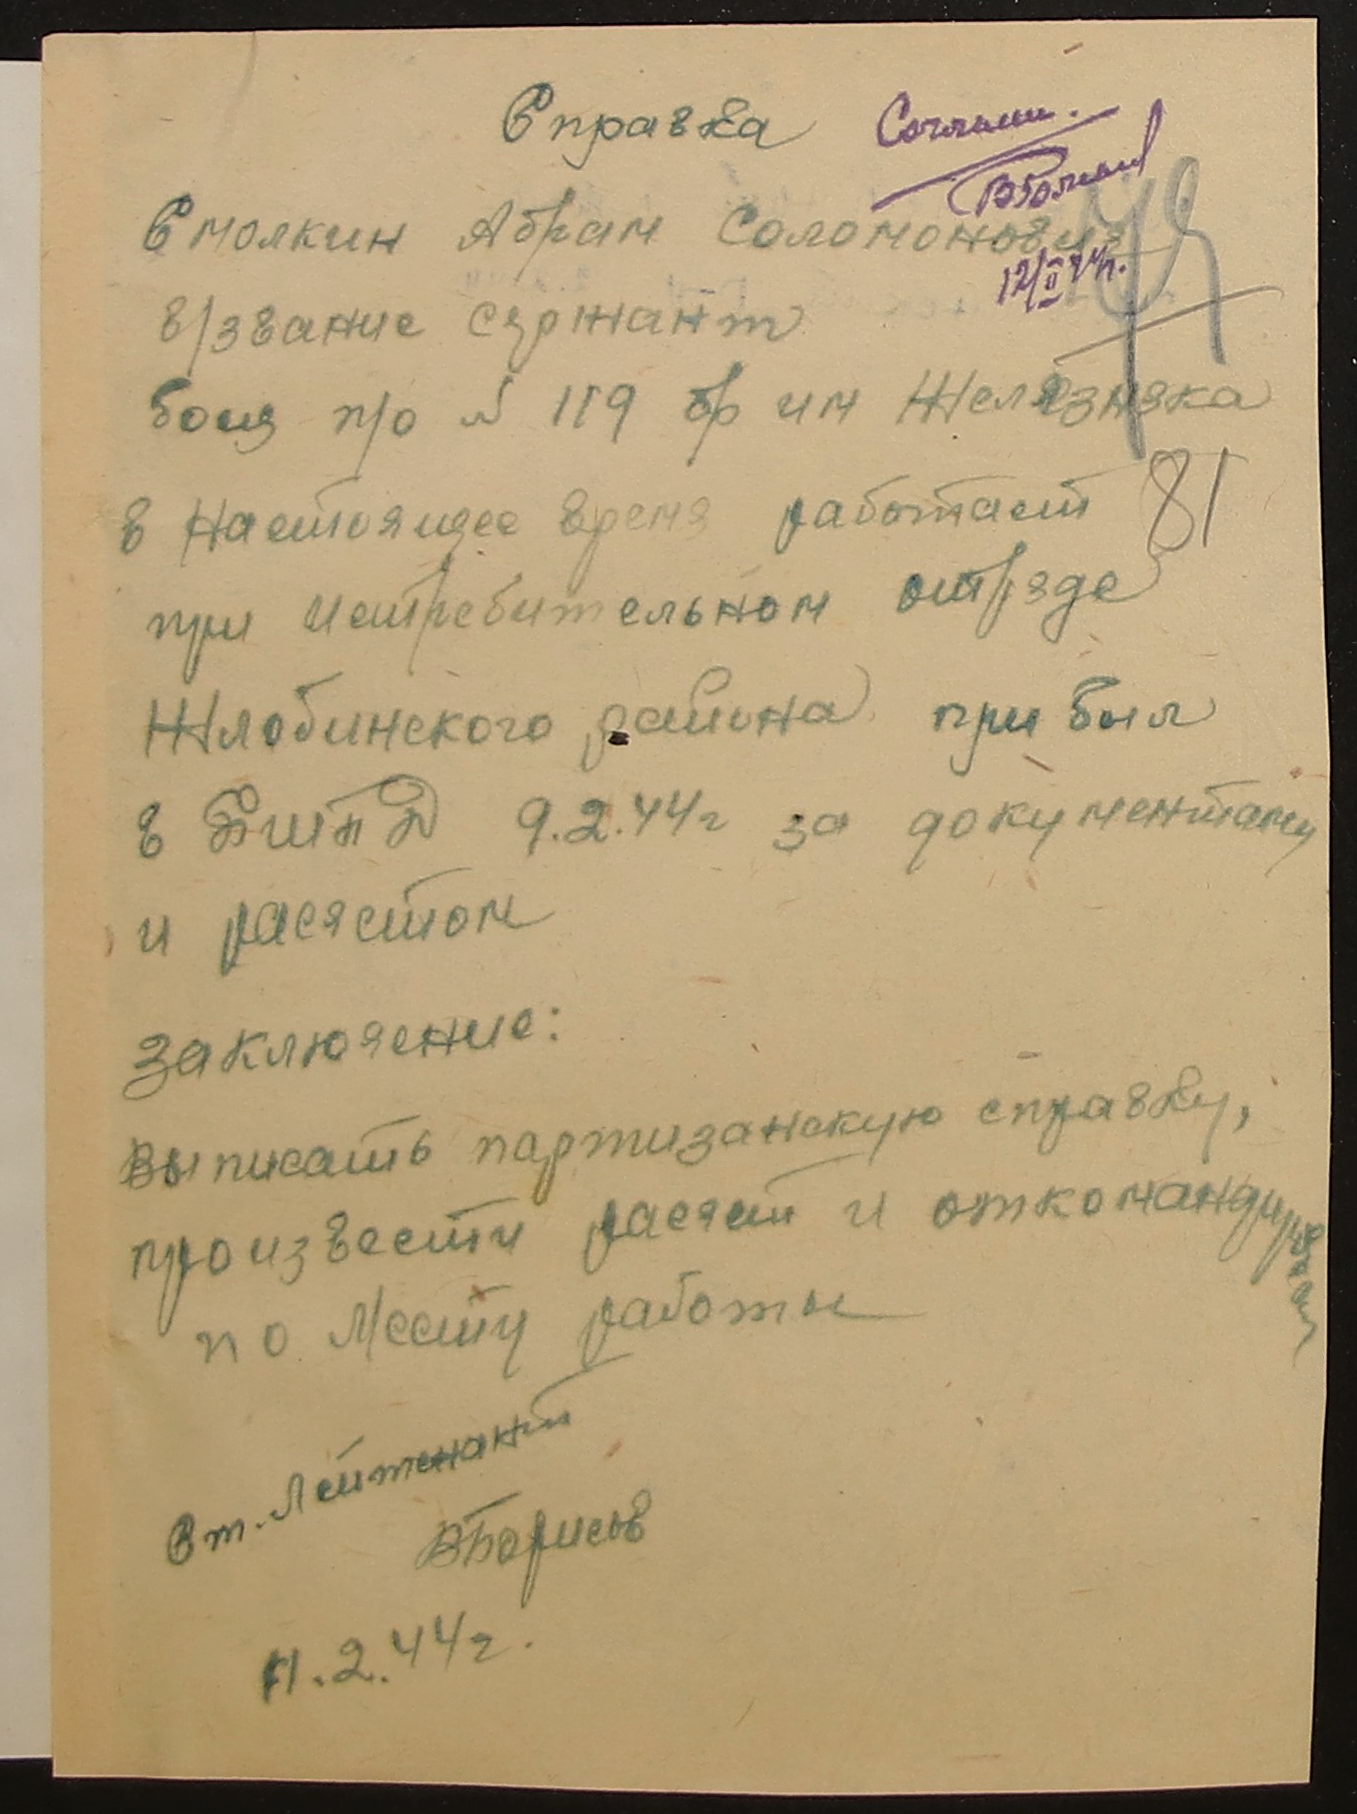 Справка
Согласен.
12/II 44г.
Смолкин Абрам Соломонович
в/звание сержант
боец п/о № 119 бр им Железняка
в настоящее время работает
81
при истребительном отряде
Жлобинского района прибыл
в БШПД 9.2.44г за документами
и расчетом
Заключение:
Выписать партизанскую справку,
произвести расчет и откомандировать
по месту работы
Ст. Лейтенант
ВБорисов
11.2.44г.